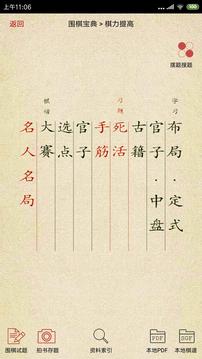 上午11:06
返回
围棋宝典 > 棋力提高
摆题搜题
学习
布局·定式
官子·中盘
古籍
习题
死活
手筋
官子
选点
棋谱
大赛
名人名局
围棋试题
拍书存题
资料索引
本地PDF
本地棋谱
PDF
SGF